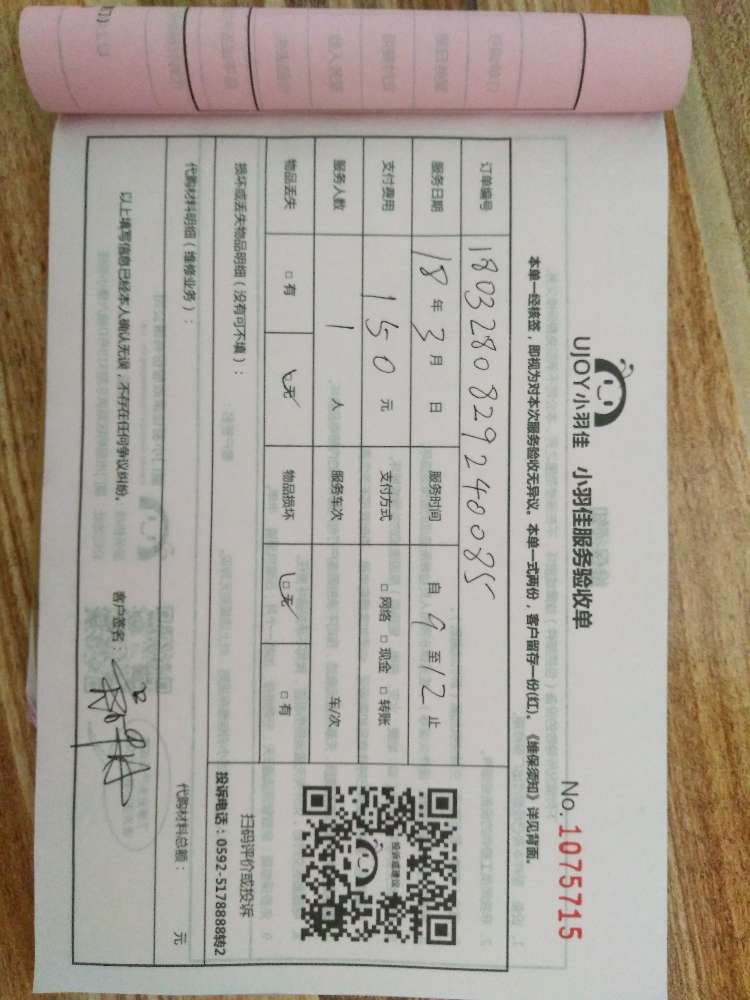 UJOY小羽佳 小羽佳服务验收单
No. 1075715
本单一经核签，即视为对本次服务验收无异议。本单一式两份，客户留存一份(红)。《维保须知》详见背面。
订单编号 180328082924008 5
服务日期 18 年 3 月 日 服务时间 自 9 至 12 止
支付费用 150 元 支付方式 □ 网络 □ 现金 □ 转账
服务人数 1 人 服务车次 车/次
物品丢失 □ 有 □ 无 物品损坏 □ 无 □ 有
损坏或丢失物品明细（没有可不填）：
投诉或建议
扫码评价或投诉
投诉电话：0592-5178888转2
代购材料明细（维修业务）：
代购材料总额： 元
以上填写信息已经本人确认无误，不存在任何争议纠纷。
客户签名：